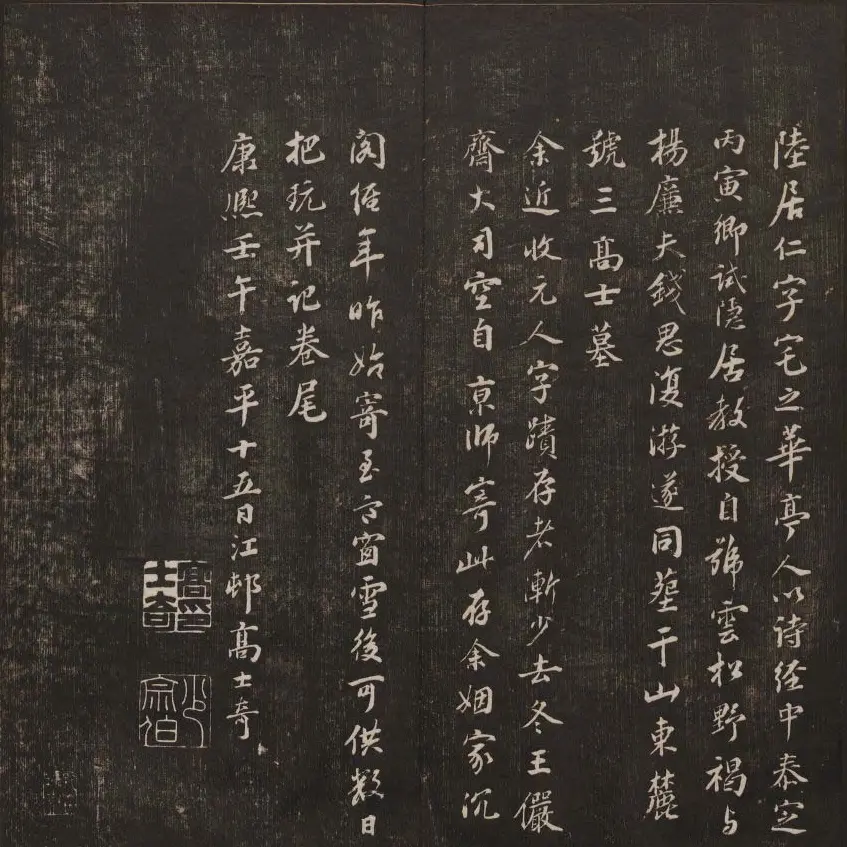 陸居仁字宅之華亭人以诗经中泰定
丙寅鄉試隐居教授自號雲松野褐与
楊廉夫錢思復游遂同葬干山東麓
號三髙士墓
余近收元人字蹟存者漸少去冬王儼
齋大司空自京師寄此存余姻家沉
阁经年昨始寄至窗雪後可供数日
把玩并记卷尾
康熙壬午嘉平十五日江邨髙士奇
髙士奇印
宗伯